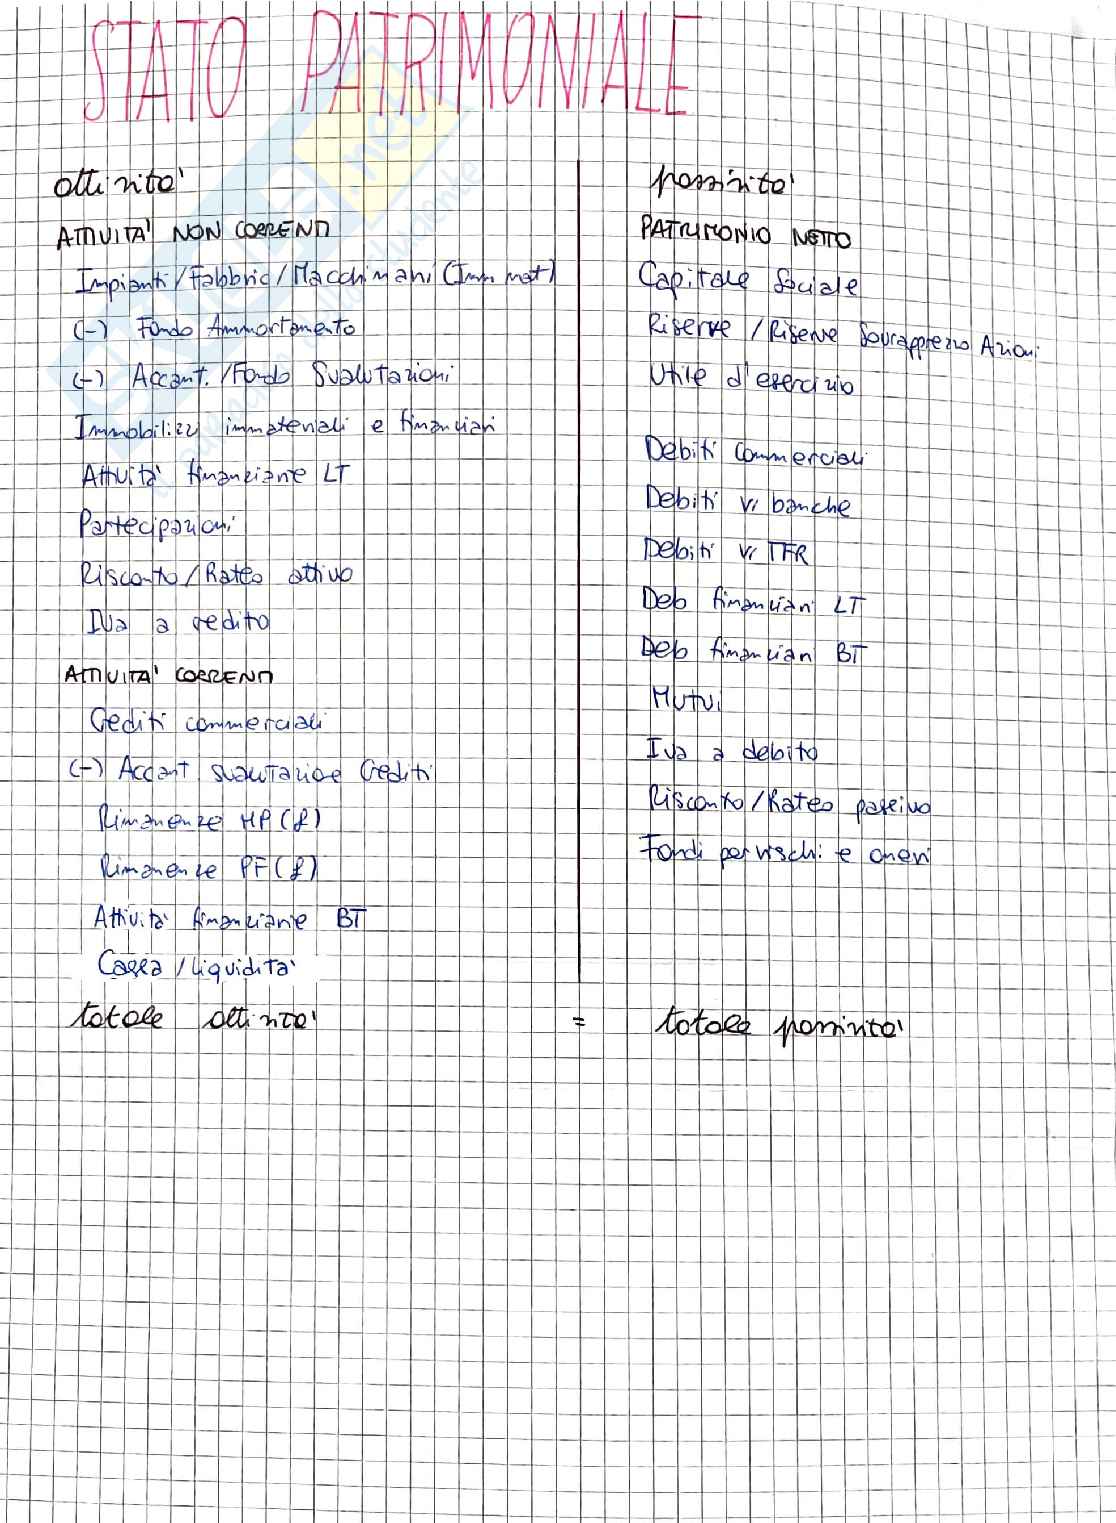 STATO PATRIMONIALE
attività
ATTIVITA' NON CORRENTI
Impianti/Fabbric/Macchinari (Imm mat)
(-) Fondo Ammortamento
(-) Accant. /Fondo Svalutazioni
Immobilizz immateriali e finanziari
Attività finanziarie LT
Partecipazioni
Risconto/Rateo attivo
IVa a credito
ATTIVITA' CORRENTI
Crediti commerciali
(-) Accant svalutazione Crediti
Rimanenze MP (f)
Rimanenze PF (f)
Attività finanziarie BT
Cassa / liquidità
totale attività
passività
PATRIMONIO NETTO
Capitale Sociale
Riserve / Riserve Sovrapprezzo Azioni
Utile d'esercizio
Debiti Commerciali
Debiti v/ banche
Debiti v/ TFR
Deb finanziari LT
Deb finanziari BT
Mutui
Iva a debito
Risconto/Rateo passivo
Fondi per rischi e oneri
= totale passività